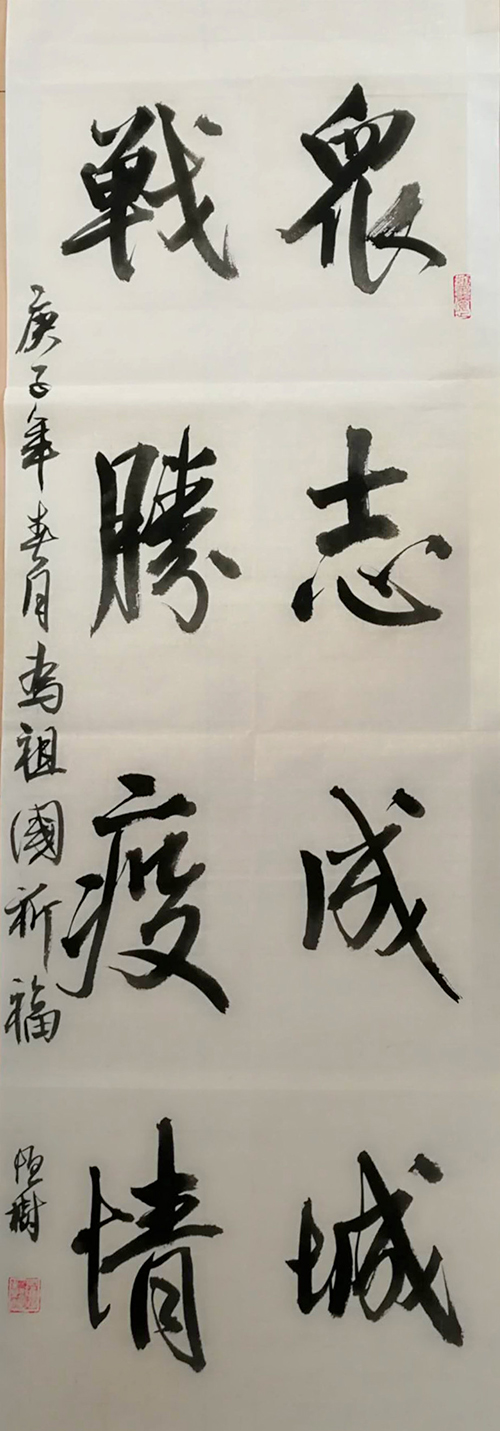 眾志成城
戰勝疫情
庚子年春月为祖國祈福
恒樹